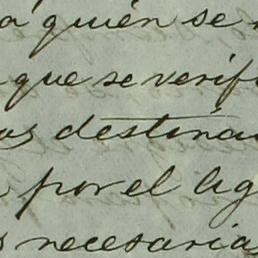 a quién se
que se verif
os destina
por el lig
s necesarias